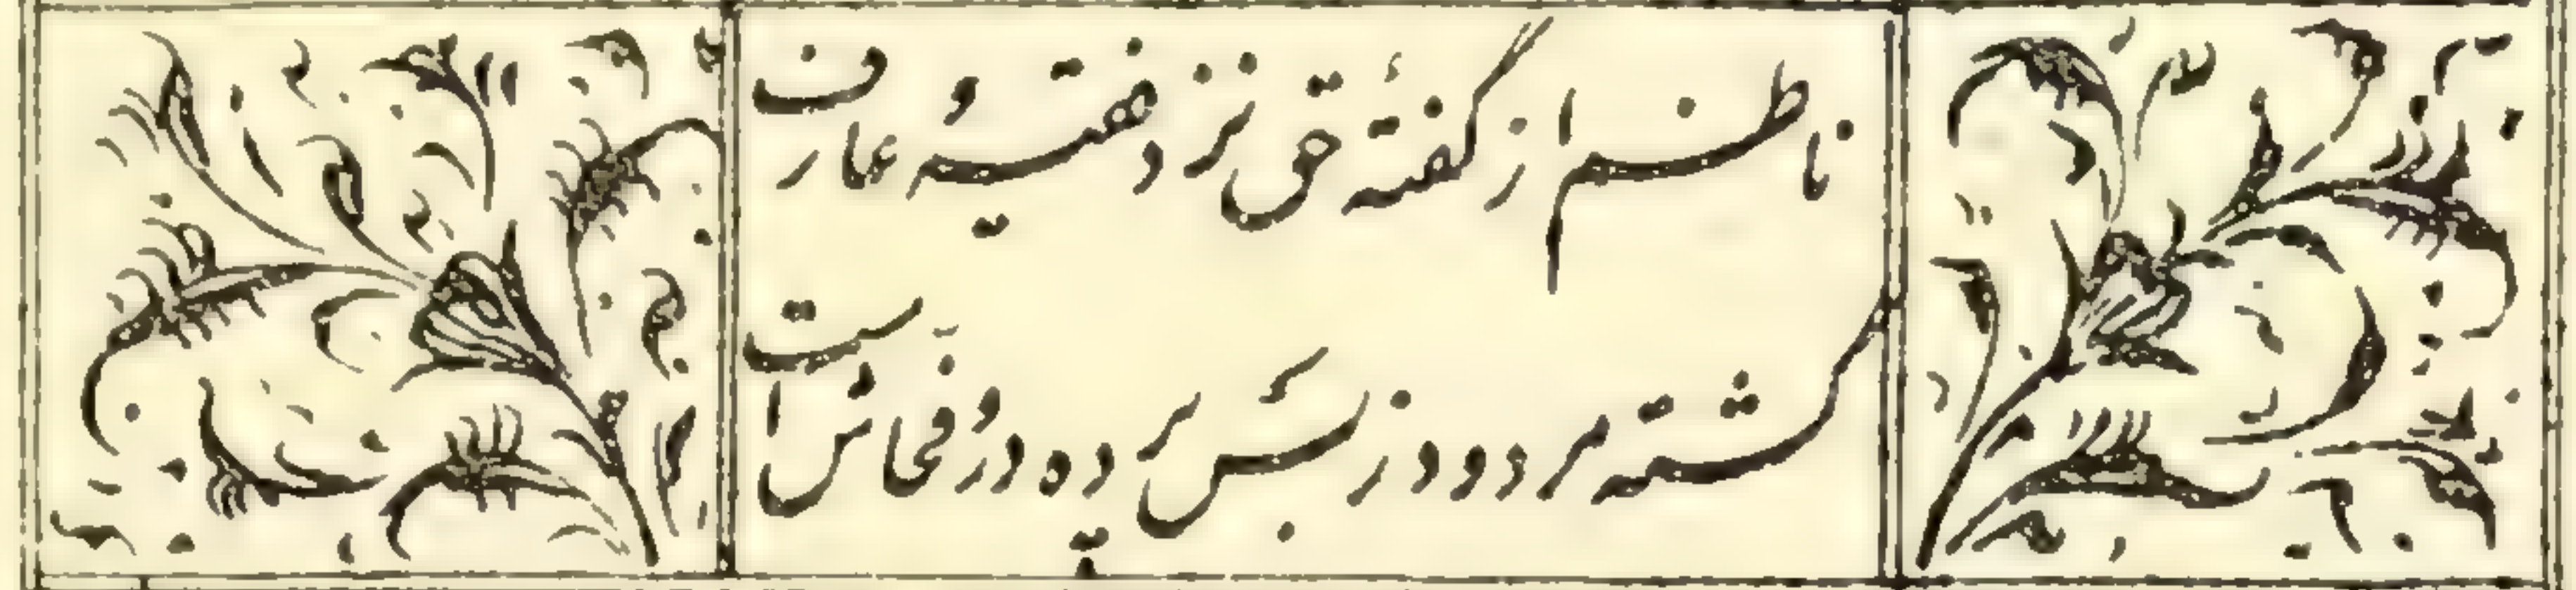 ناظم از گفتهٔ حق نزد فقیهٔ عارف
گشته مردود ز بس پرده در و فحاش است